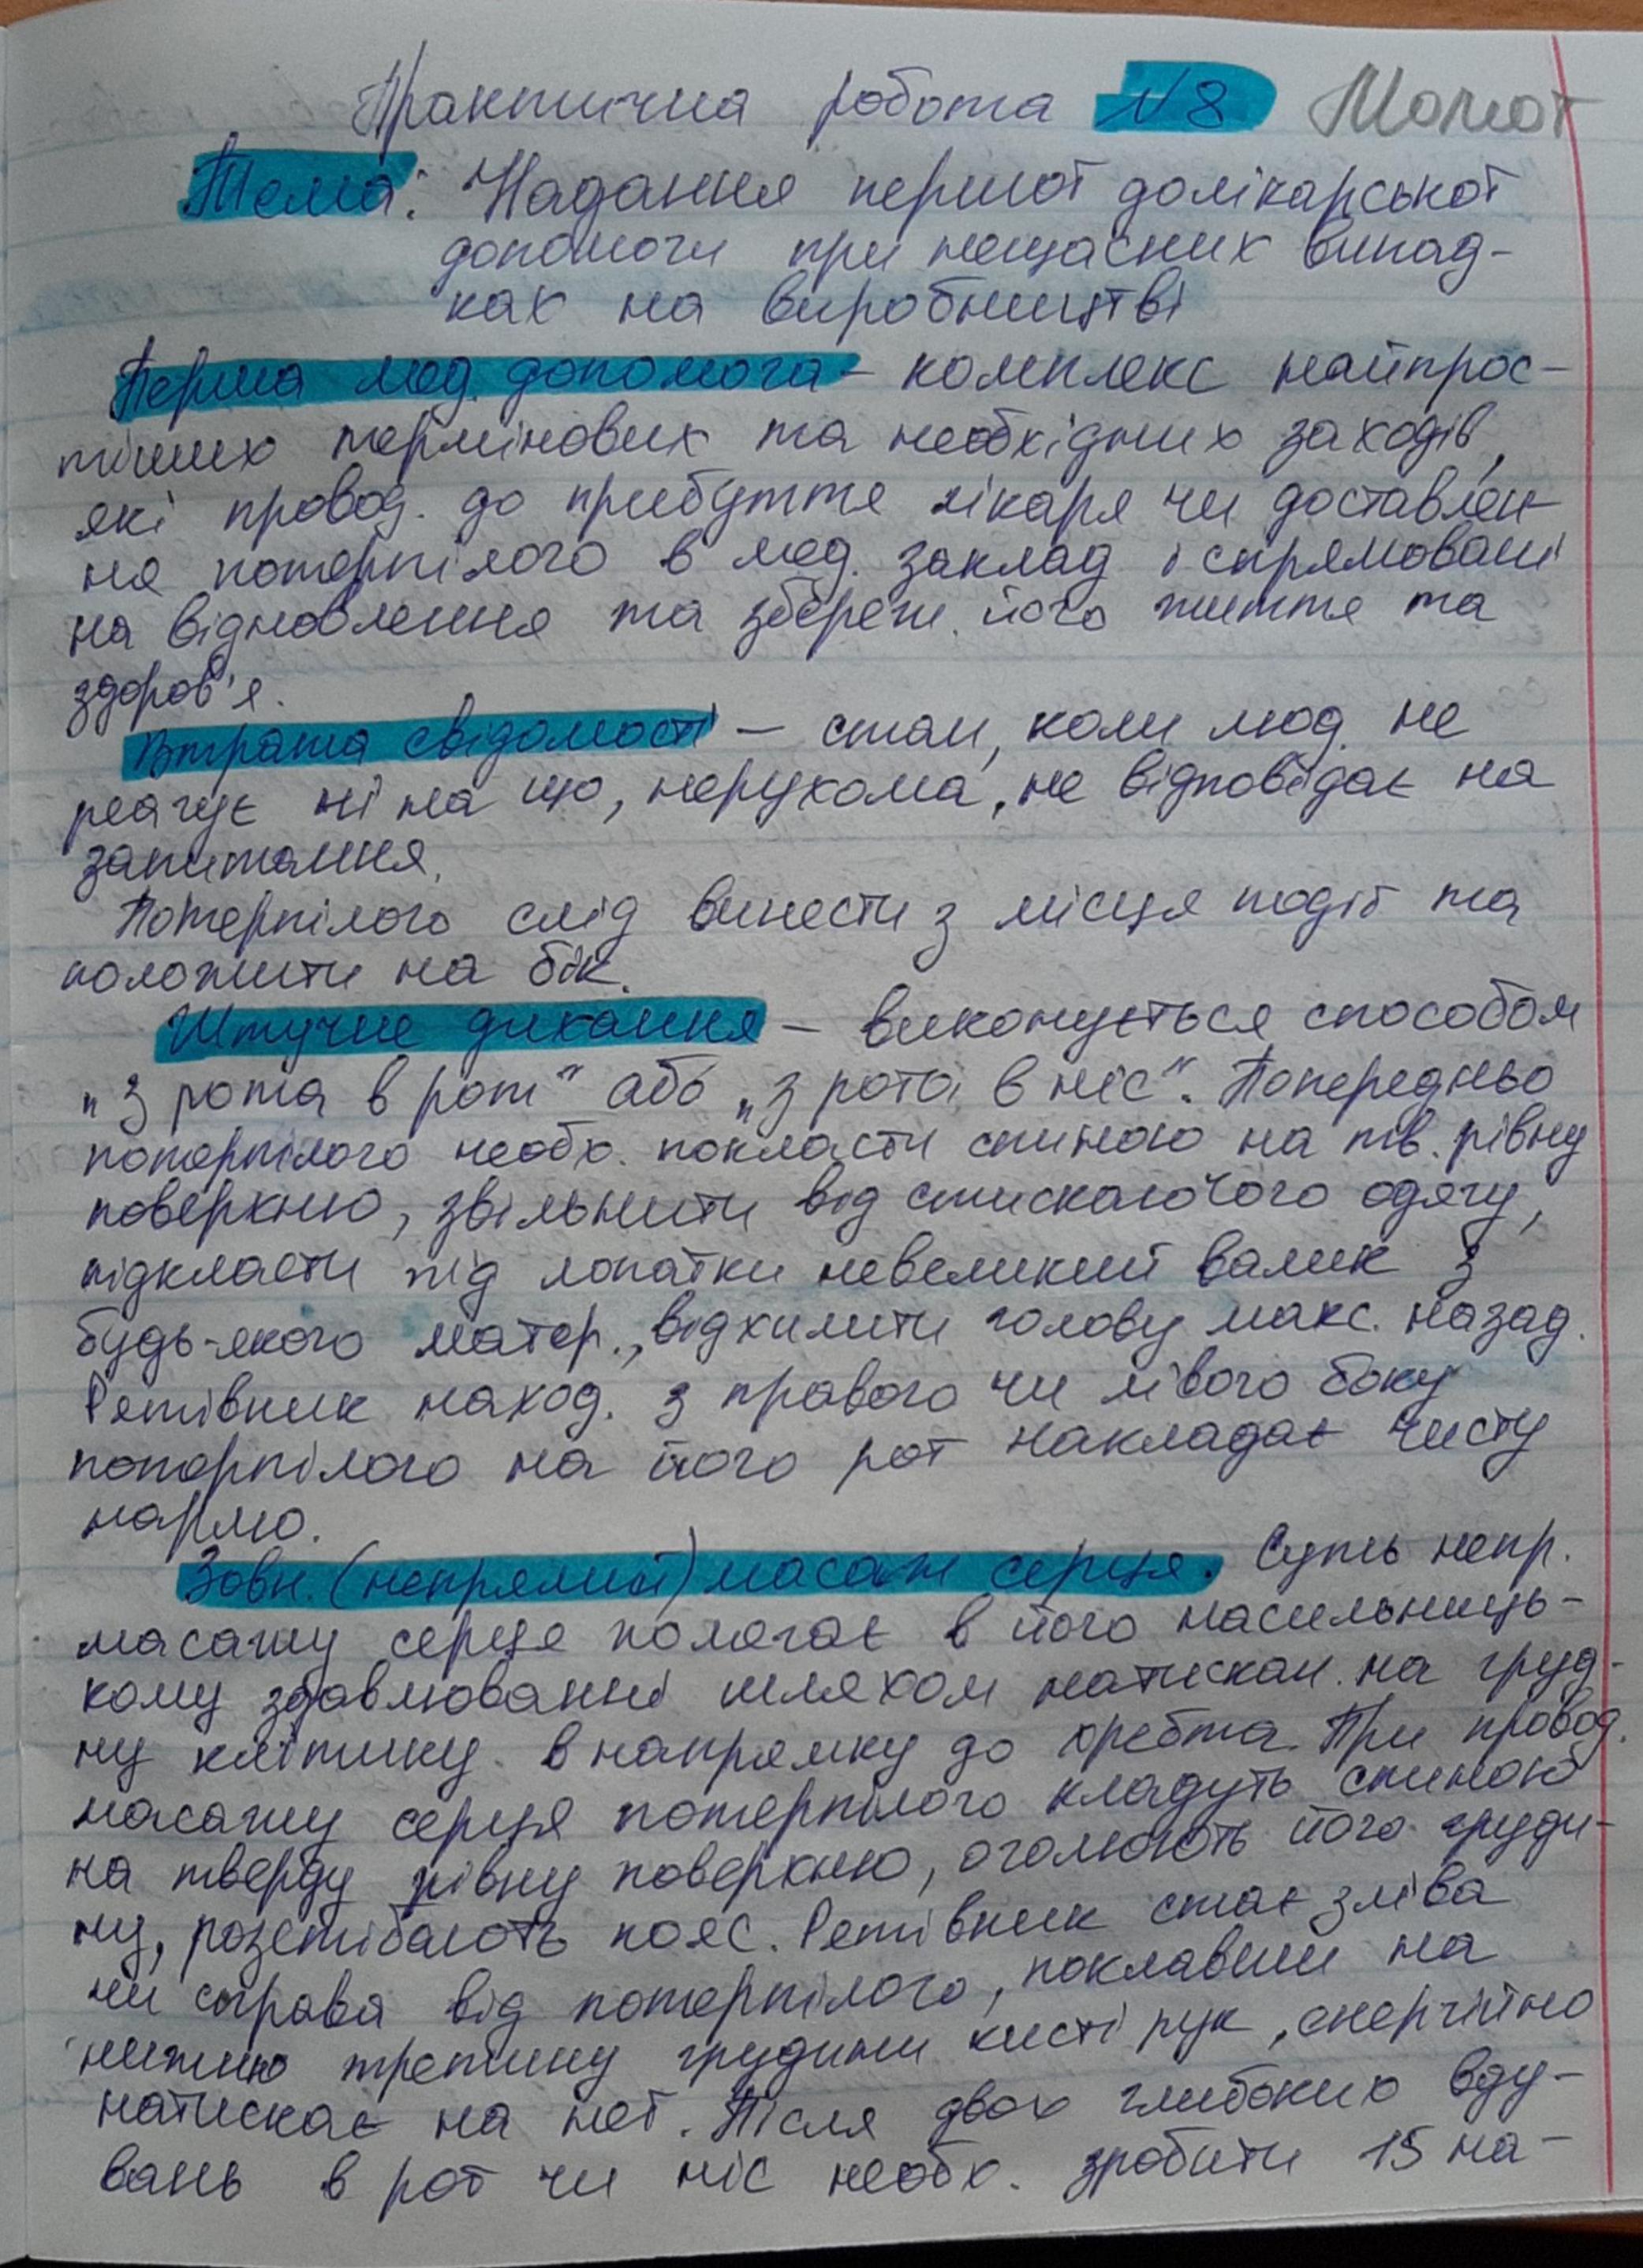 Практична робота №8 Момот
Тема: Надання першої долікарської
допомоги при нещасних випад-
ках на виробництві
Перша мед. допомога - комплекс найпрос-
тіших термінових та необхідних заходів,
які провод. до прибуття лікаря чи доставлен-
ня потерпілого в мед. заклад і спрямовані
на відновлення та збереж. його життя та
здоров'я.
Втрата свідомості - стан, коли люд. не
реагує ні на що, нерухома, не відповідає на
запитання.
Потерпілого слід винести з місця події та
положити на бік.
Штучне дихання - виконується способом
"з рота в рот" або "з рота в ніс". Попередньо
потерпілого необх. покласти спиною на тв. рівну
поверхню, звільнити від стискаючого одягу,
підкласти під лопатки невеликий валик з
будь-якого матер., відхилити голову макс. назад.
Рятівник наход. з правого чи лівого боку
потерпілого на його рот накладає чисту
марлю.
Зовн. (непрямий) масаж серця. Суть непр.
масажу серця полягає в його насильниць-
кому здавлюванні шляхом натискан. на груд-
ну клітину в напрямку до хребта. При провод.
масажу серця потерпілого кладуть спиною
на тверду рівну поверхню, оголюють його груди-
ну, розстібають пояс. Рятівник стає зліва
чи справа від потерпілого, поклавши на
нижню третину грудини кисті рук, енергійно
натискає на неї. Після двох глибоких вду-
вань в рот чи ніс необх. зробити 15 на-